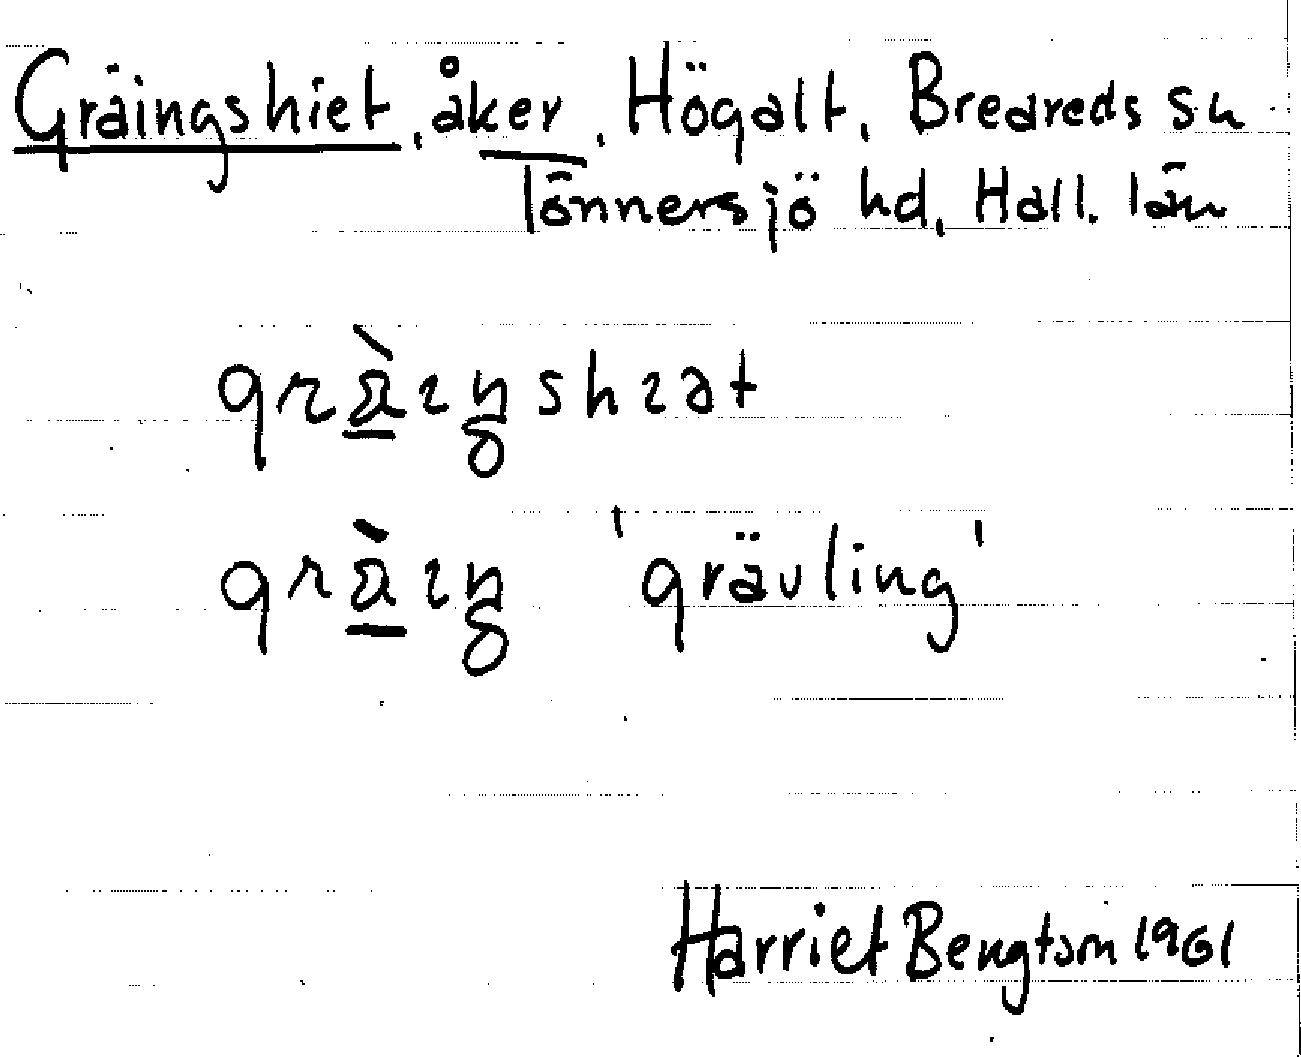 Gräingshiet, åker, Högalt, Breareds sn
Tönnersjö hd, Hall. län
grà̱ıŋshıət
grà̱ıŋ 'grävling'
Harriet Bengtson 1961